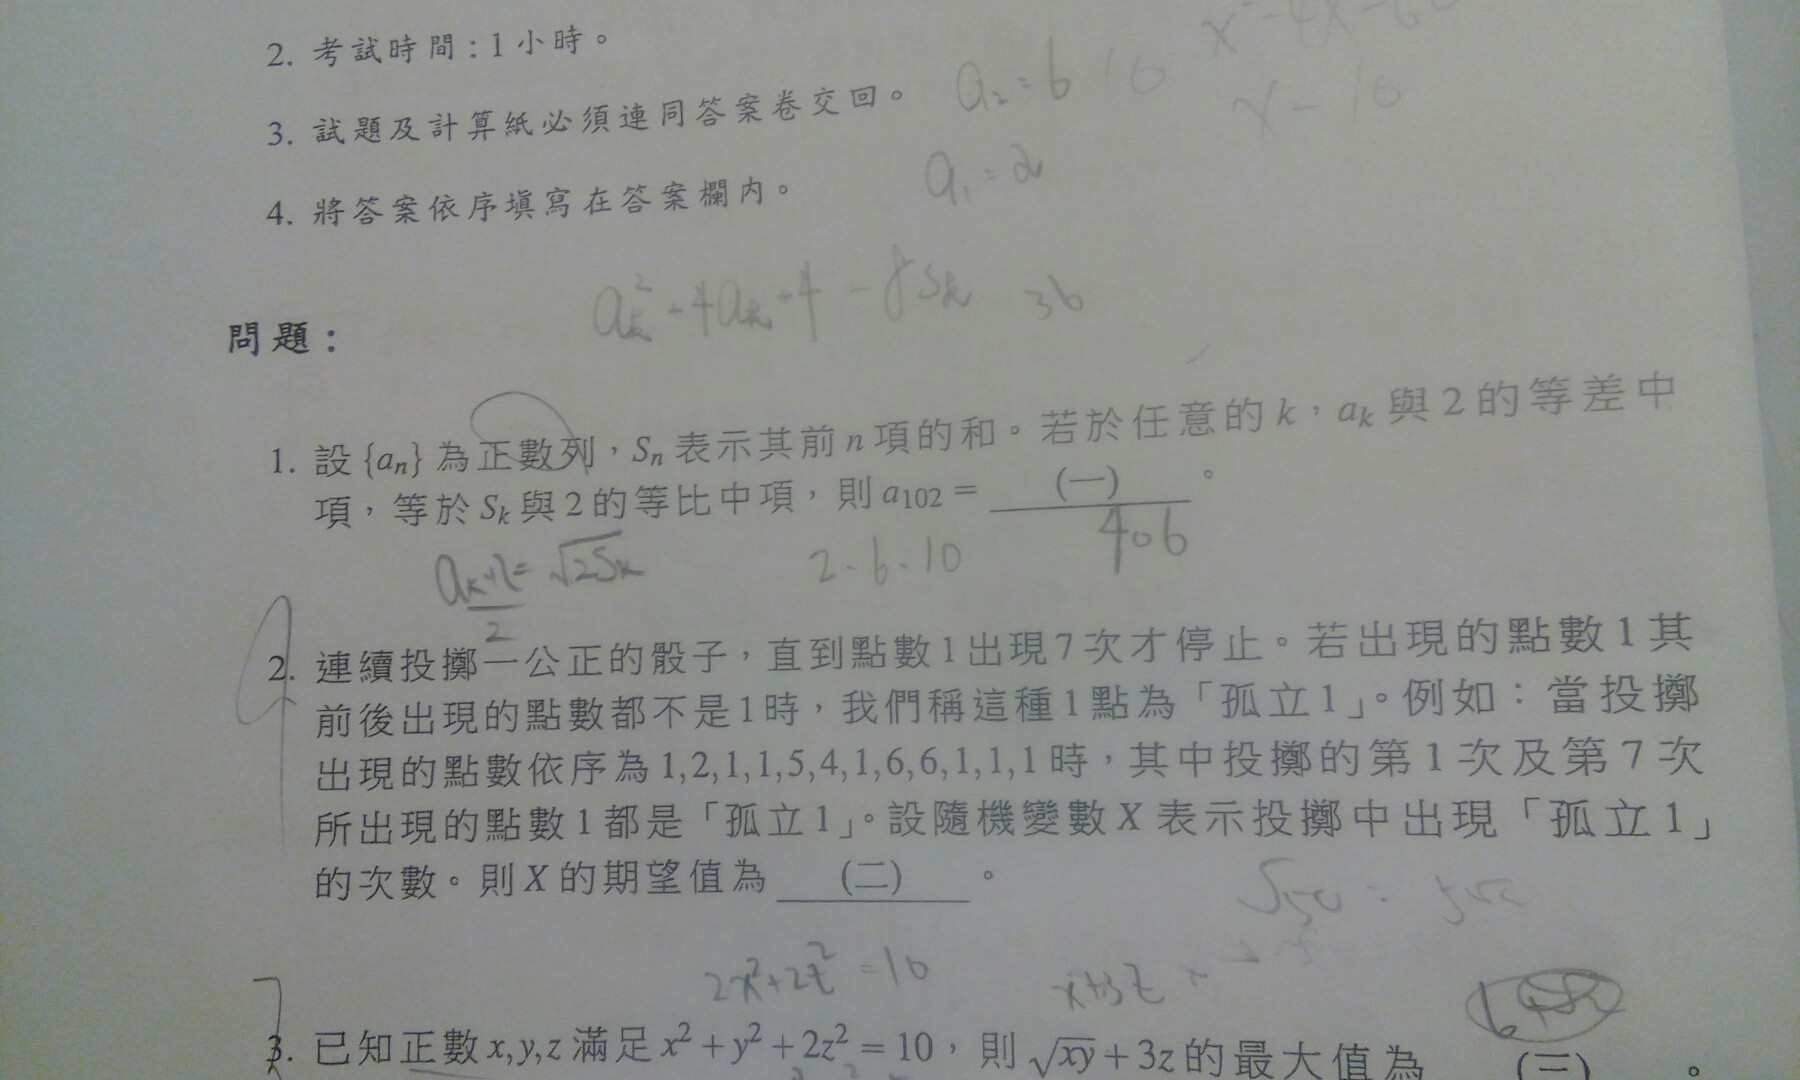 2. 考試時間：1小時。
3. 試題及計算紙必須連同答案卷交回。
a₂=6 10
x-10
4. 將答案依序填寫在答案欄內。
a₁=2
aₖ²+4aₖ+4-8Sₖ 36
問題：
1. 設{aₙ}為正數列，Sₙ表示其前n項的和。若於任意的k，aₖ與2的等差中
項，等於Sₖ與2的等比中項，則a₁₀₂=(一)。
406
(aₖ+2)/2=√2Sₖ 2.6.10
2. 連續投擲一公正的骰子，直到點數1出現7次才停止。若出現的點數1其
前後出現的點數都不是1時，我們稱這種1點為「孤立1」。例如：當投擲
出現的點數依序為1,2,1,1,5,4,1,6,6,1,1,1時，其中投擲的第1次及第7次
所出現的點數1都是「孤立1」。設隨機變數X表示投擲中出現「孤立1」
的次數。則X的期望值為(二)。
2x²+2z²=10 x+3z
3. 已知正數x,y,z滿足x²+y²+2z²=10，則√xy+3z的最大值為(三)。